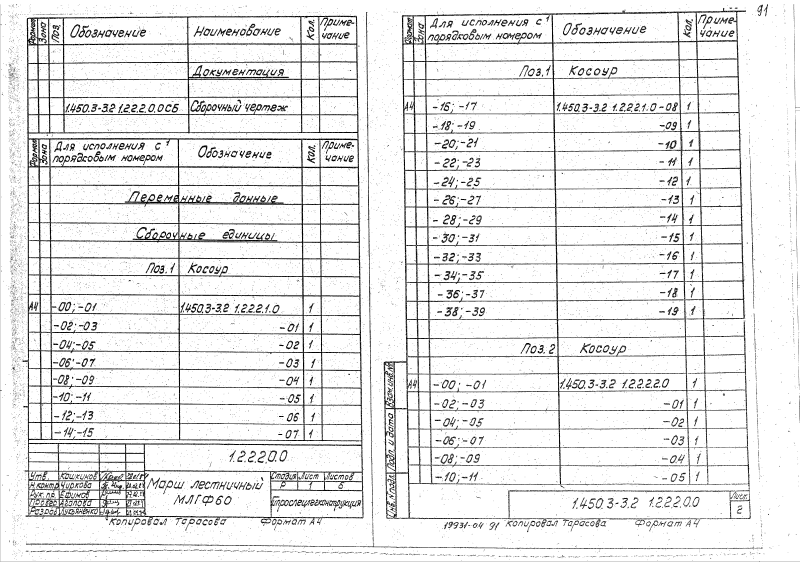 91
Формат Зона Поз. Обозначение Наименование Кол. Приме-чание
Документация
1.450.3-3.2 1.2.2.2.0.0СБ Сборочный чертеж
Формат Зона Для исполнения с порядковым номером Обозначение Кол. Приме-чание
Переменные данные
Сборочные единицы
Поз.1 Косоур
А4 -00; -01 1.450.3-3.2 1.2.2.2.1.0 1
-02; -03 -01 1
-04; -05 -02 1
-06; -07 -03 1
-08; -09 -04 1
-10; -11 -05 1
-12; -13 -06 1
-14; -15 -07 1
1.2.2.2.0.0
Утв. Кашкинов
Н.контр Чиркова
Рук.пр. Ефимов
Провер.
Разраб. Лукьяненко
Марш лестничный
МЛГФ60
Стадия Лист Листов
Р 1 6
Копировал Тарасова Формат А4
Формат Зона Для исполнения с порядковым номером Обозначение Кол. Приме-чание
Поз.1 Косоур
А4 -16; -17 1.450.3-3.2 1.2.2.2.1.0 -08 1
-18; -19 -09 1
-20; -21 -10 1
-22; -23 -11 1
-24; -25 -12 1
-26; -27 -13 1
-28; -29 -14 1
-30; -31 -15 1
-32; -33 -16 1
-34; -35 -17 1
-36; -37 -18 1
-38; -39 -19 1
Поз.2 Косоур
А4 -00; -01 1.450.3-3.2 1.2.2.2.2.0 1
-02; -03 -01 1
-04; -05 -02 1
-06; -07 -03 1
-08; -09 -04 1
-10; -11 -05 1
Инв.№подл. Подп. и дата Взам.инв.№
1.450.3-3.2 1.2.2.2.0.0
Лист
2
19931-04 91 Копировал Тарасова Формат А4